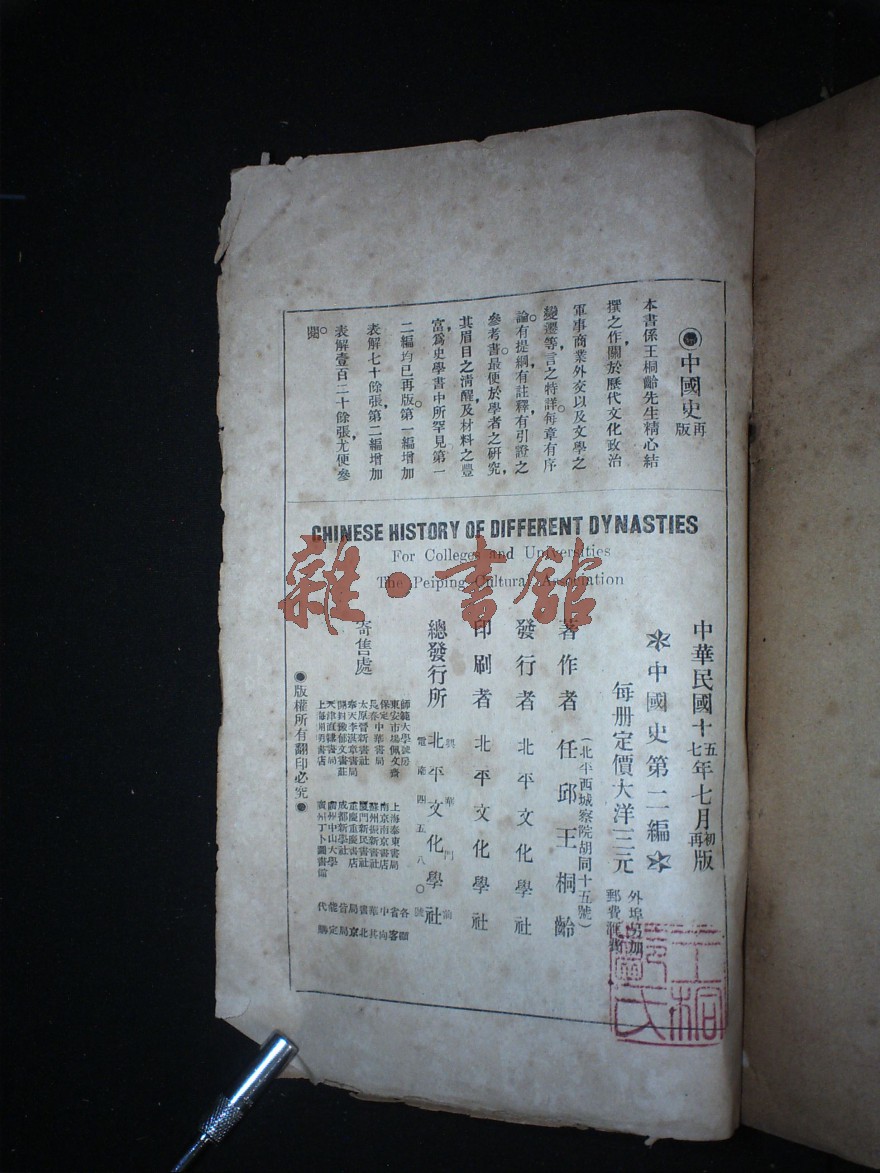 中國史再版
本書係王桐齡先生精心結
撰之作，關於歷代文化政治
軍事商業外交以及文學之
變遷等言之特詳。每章有序
論，有提綱有註釋有引證之
參考書。最便於學者之研究，
其眉目之清醒及材料之豐
富，爲史學書中所罕見第一
二編均已再版。第一編增加
表解七十餘張，第二編增加
表解壹百二十餘張，尤便參
閱。
CHINESE HISTORY OF DIFFERENT DYNASTIES
For Colleges and Universities
The Peiping Cultural Association
中華民國十五七年七月初再版
中國史第二編
每册定價大洋三元
外埠另加
郵費
(北平西城察院胡同十五號)
著作者 任邱王桐齡
發行者 北平文化學社
印刷者 北平文化學社
總發行所 北平文化學社
興華門前
電南四五八〇號
寄售處
師範大學號房
東安市場佩文齋
保定中華書局
長春
太原晉新書社
奉天李漢章書局
開封豫郁文書莊
天津直隸書局
上海泰東書局
南京南京書店
蘇州振新書社
廈門新民書社
重慶重慶書店
成都新學社
廣州中山大學
廣州丁卜圖書館
各省中華書局當能代
版權所有翻印必究
王桐齡氏
雜·書館